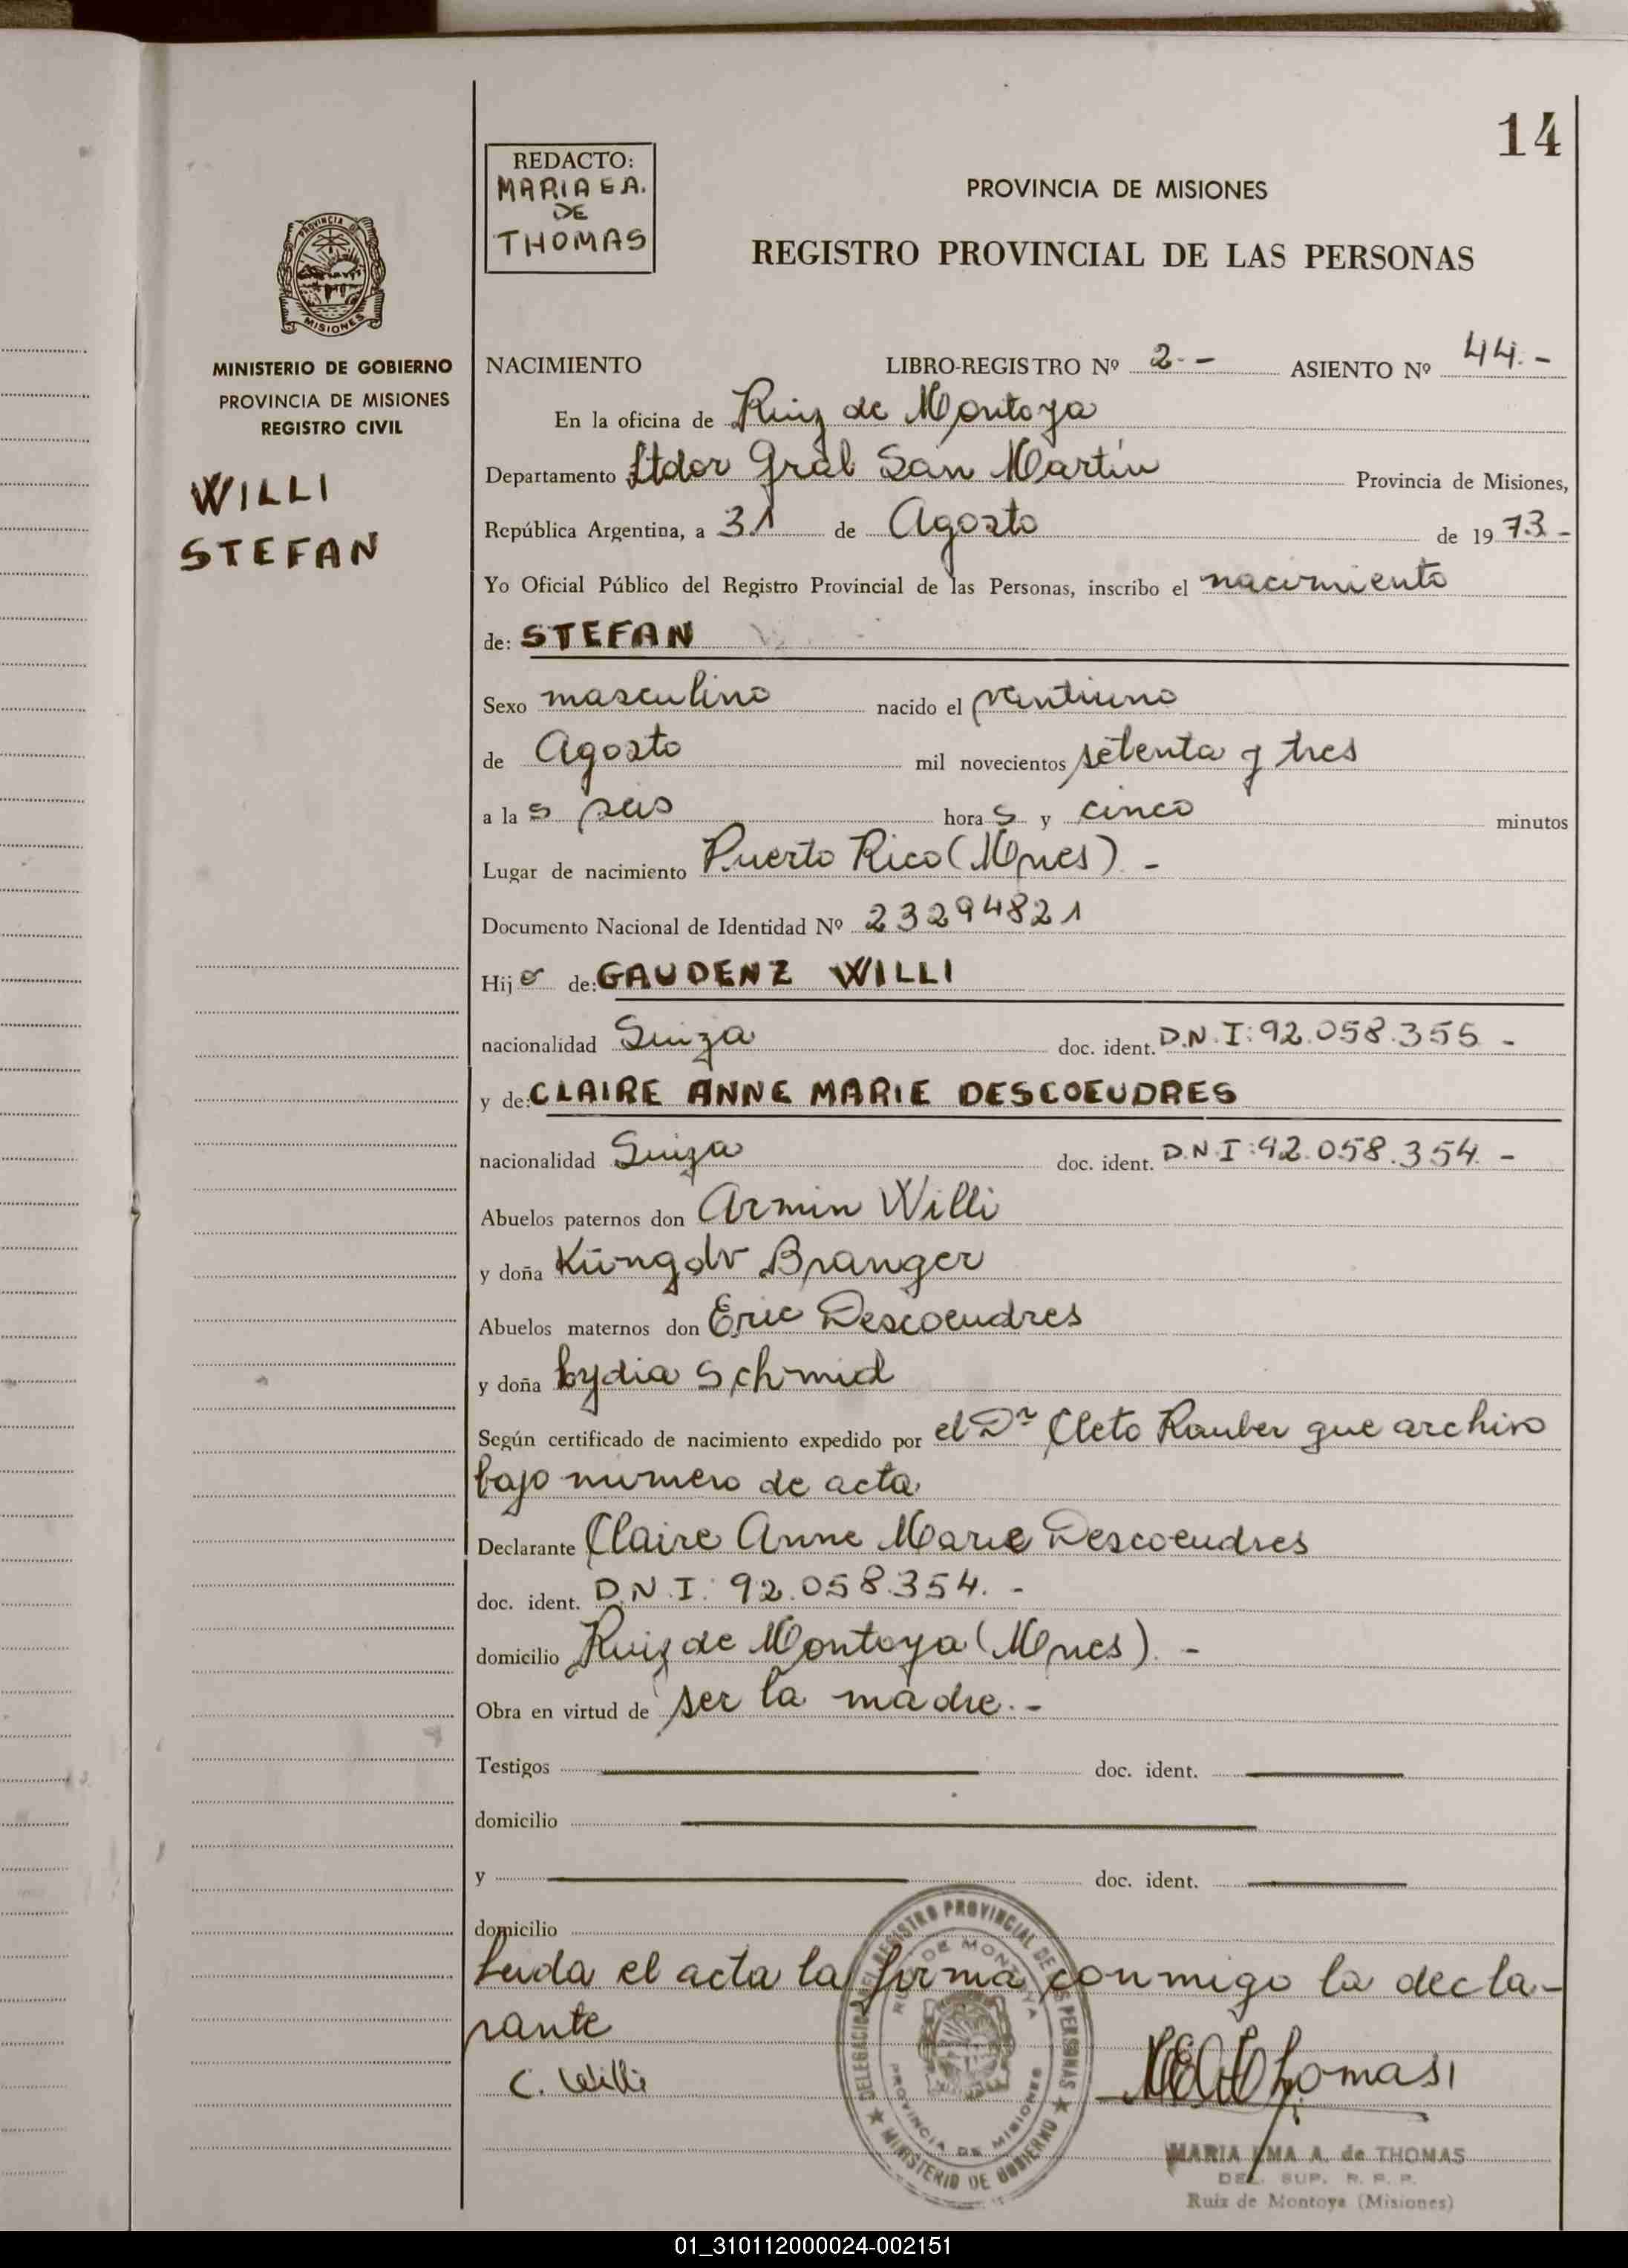 14
REDACTO:
MARIA E A.
DE
THOMAS
PROVINCIA DE MISIONES
REGISTRO PROVINCIAL DE LAS PERSONAS
PROVINCIA DE
MISIONES
MINISTERIO DE GOBIERNO
PROVINCIA DE MISIONES
REGISTRO CIVIL
WILLI
STEFAN
NACIMIENTO LIBRO-REGISTRO Nº 2-- ASIENTO Nº 44.-
En la oficina de Ruiz de Montoya
Departamento Ltdor Gral San Martín Provincia de Misiones,
República Argentina, a 31 de Agosto de 1973-
Yo Oficial Público del Registro Provincial de las Personas, inscribo el nacimiento
de: STEFAN
Sexo masculino nacido el veintiuno
de Agosto mil novecientos setenta y tres
a la s seis hora s y cinco minutos
Lugar de nacimiento Puerto Rico (Mnes). -
Documento Nacional de Identidad Nº 23294821
Hij o de: GAUDENZ WILLI
nacionalidad Suiza doc. ident. D.N.I: 92.058.355 -
y de: CLAIRE ANNE MARIE DESCOEUDRES
nacionalidad Suiza doc. ident. D.N.I: 92.058.354. -
Abuelos paternos don Armin Willi
y doña Branger
Abuelos maternos don Eric Descoeudres
y doña Lydia Schmid
Según certificado de nacimiento expedido por el Dr Cleto Rauber que archivo
bajo numero de acta
Declarante Claire Anne Marie Descoeudres
doc. ident. D.N.I: 92.058.354. -
domicilio Ruiz de Montoya (Mnes). -
Obra en virtud de ser la madre. -
Testigos doc. ident.
domicilio
y doc. ident.
domicilio
Leida el acta la firma conmigo la decla-
rante
C. Willi
DELEGACION DEL REGISTRO PROVINCIAL DE LAS PERSONAS
MINISTERIO DE GOBIERNO
RUIZ DE MONTOYA
PROVINCIA DE MISIONES
MARIA EMA A. de THOMAS
DEL. SUP. R. P. P.
Ruiz de Montoya (Misiones)
01_310112000024-002151